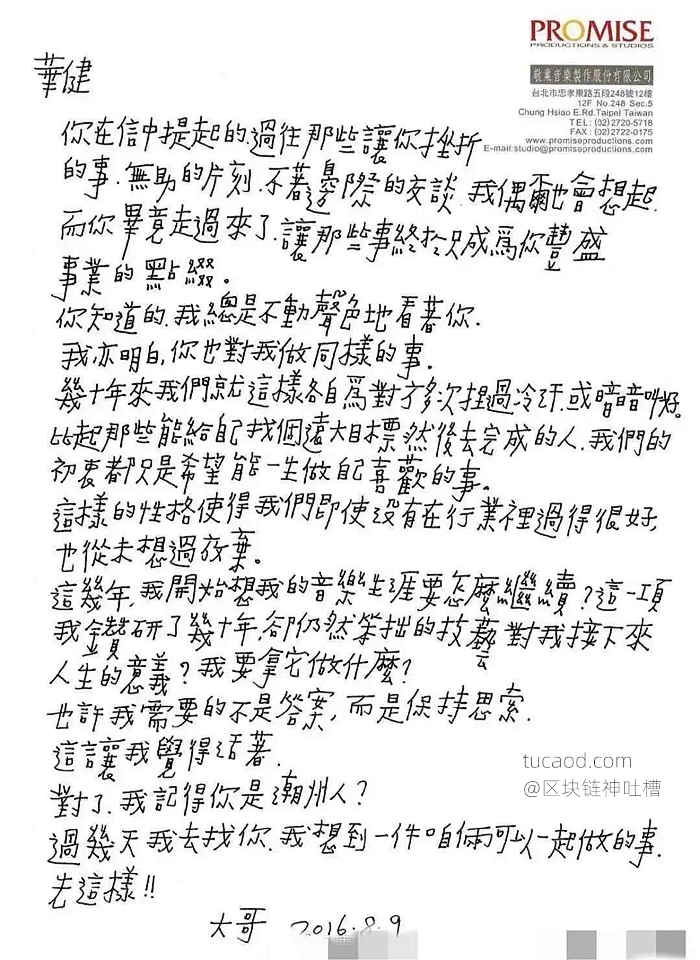 PROMISE
PRODUCTIONS & STUDIOS
敬業音樂製作股份有限公司
台北市忠孝東路五段248號12樓
12F No.248 Sec.5
Chung Hsiao E.Rd.Taipei Taiwan
TEL: (02)2720-5718
FAX: (02)2722-0175
www.promiseproductions.com
E-mail:studio@promiseproductions.com
華健
你在信中提起的.過往那些讓你挫折
的事.無助的片刻.不著邊際的交談.我偶爾也會想起.
而你畢竟走過來了.讓那些事終於只成為你豐盛
事業的點綴。
你知道的.我總是不動聲色地看著你.
我亦明白,你也對我做同樣的事。
幾十年來我們就這樣各自為對方多次捏過冷汗.或暗暗叫好。
比起那些能給自己找個遠大目標然後去完成的人.我們的
初衷都只是希望能一生做自己喜歡的事。
這樣的性格使得我們即使沒有在行業裡過得很好,
也從未想過放棄。
這幾年,我開始想我的音樂生涯要怎麼繼續?這一項
我鑽研了幾十年,卻仍然笨拙的技藝對我接下來
人生的意義?我要拿它做什麼?
也許我需要的不是答案,而是保持思索.
這讓我覺得活著.
對了.我記得你是潮州人?
過幾天我去找你.我想到一件咱倆可以一起做的事.
先這樣!!
大哥 2016.8.9
tucaod.com
@区块链神吐槽